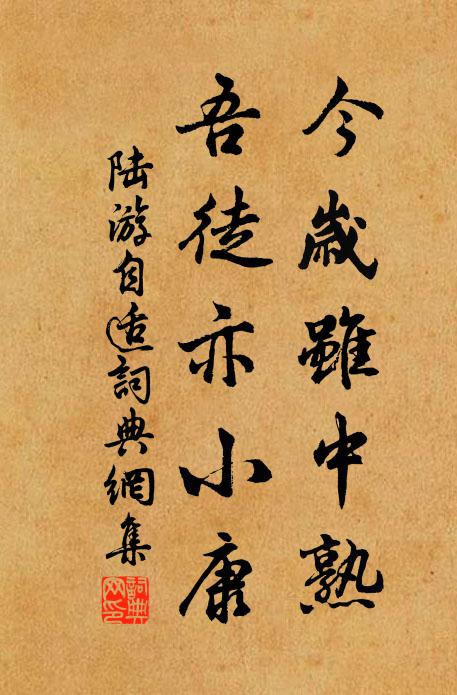 今歲雖中熟
吾徒亦小康
陆游自适詞典網集
詞典网印